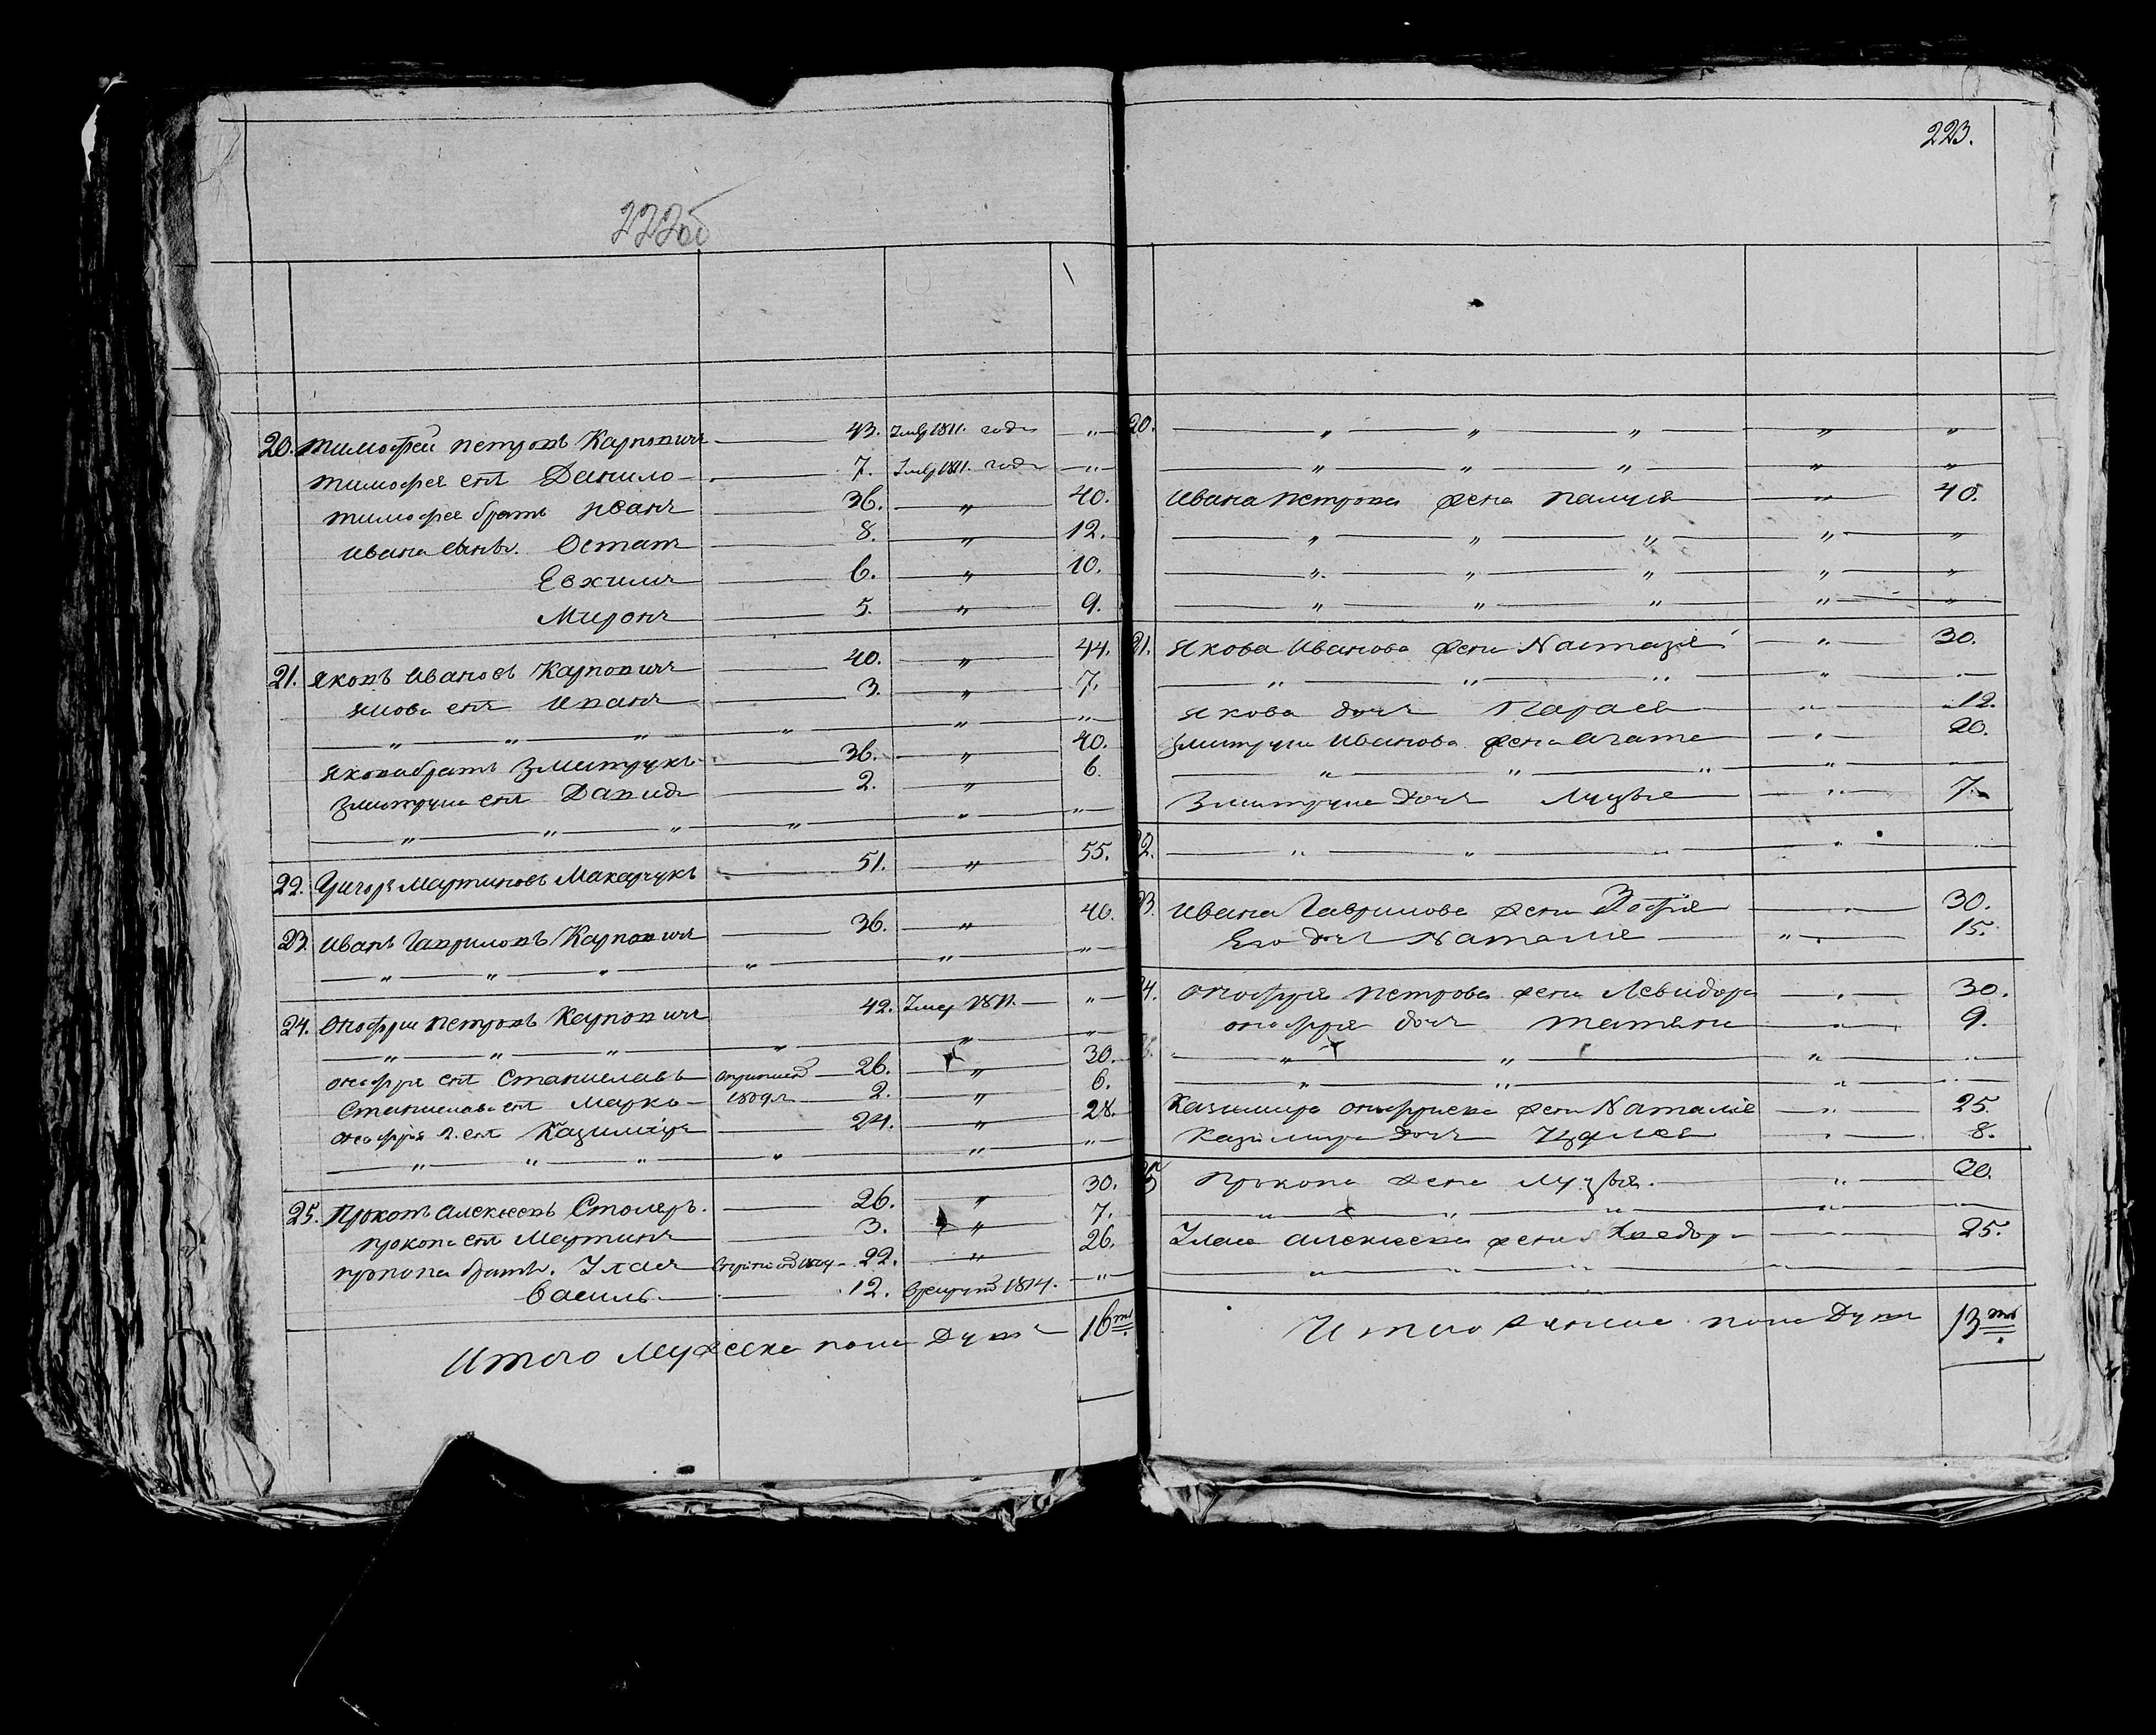 222об
20. Тимофей Петровъ Карповичъ 43. Умер 1811. года "
Тимофея сынъ Данило 7. Умер 1811. года "
Тимофея братъ Иванъ 36. " 40.
Ивана сынъ. Остапъ 8. " 12.
Евхимъ 6. " 10.
Миронъ 5. " 9.
21. Яковъ Ивановъ Карповичъ 40. " 44.
Якова сынъ Иванъ 3. " 7.
" " " " " "
Якова братъ Змитрукъ 36. " 40.
Змитрука сынъ Давидъ 2. " 6.
" " " " " "
22. Григоръ Мартиновъ Макарчукъ 51. " 55.
23. Иванъ Гавриловъ Карповичъ 36. " 40.
" " " " " "
24. Онофрий Петровъ Карповичъ 42. Умер 1811. "
" " " " " "
Онофрия сынъ Станиславъ 26. " 30.
Станислава сынъ Марко 1809 2. " 6.
Онофрия 2. сынъ Казимиръ 24. " 28.
" " " " " "
25. Прокопъ Алексеевъ Столяръ. 26. " 30.
Прокопа сынъ Мартинъ 3. " 7.
Прокопа братъ. Улас 22. " 26.
Василь. 12. 1814. "
Итого мужеска пола душъ 16ть
223.
20. " " " " "
" " " " "
Ивана Петрова жена 40.
" " " " "
" " " " "
" " " " "
21. Якова Иванова жена Настазия " 30.
" " " " "
Якова дочь Парася " 12.
Змитрука Иванова жена Агата " 20.
" " " " "
Змитрука дочь Луцыя " 7.
22. " " " " "
23. Ивана Гаврилова жена Зофия " 30.
Его дочь Наталия " 15.
24. Онофрия Петрова жена Левидора " 30.
Онофрия дочь Татяна " 9.
" " " " "
" " " " "
Казимира Онофриева жена Наталия " 25.
Казимира дочь " 8.
25 Прокопа жена Луцыя. " 20.
" " " " "
Уласа Алексеева жена Феодора 25.
" " " " "
Итого женска пола душъ 13ть